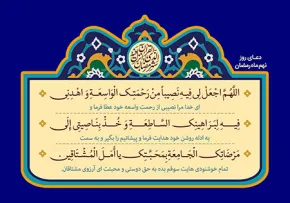 دعـای روز
نهم ماه رمضان
اَللّهُمَّ اجْعَل لی فیهِ نَصیباً مِن رَحْمَتِکَ الْواسِعَةِ وَ اهْدِنی
ای خدا مرا نصیبی از رحمت واسعه خود عطا فرما و
فیهِ لِبَراهینِکَ السّاطِعَةِ وَ خُذْ بِناصِیَتی إِلی
به ادله روشن خود هدایت فرما و پیشانیم را بگیر و به سمت
مَرْضاتِکَ الْجامِعَةِ بِمَحَبَّتِکَ یا أَمَلَ الْمُشتاقینَ
تمام خوشنودی هایت سوقم بده به حق دوستی و محبتت ای آرزوی مشتاقان.